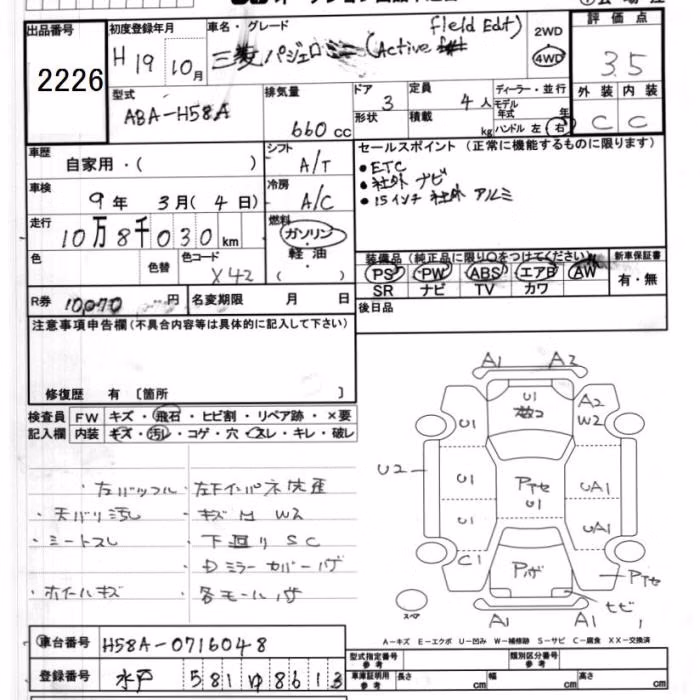 出品番号
2226
初度登録年月
H19 10月
車名・グレード
三菱 パジェロミニ (Active Field Edt)
2WD
4WD
評価点
3.5
外装 内装
C C
型式
ABA-H58A
排気量
660 cc
ドア 3
形状
定員 4人
積載 kg
ディーラー・並行
モデル年式 年
ハンドル 左 右
車歴
自家用・( )
シフト
A/T
車検
9年 3月 (4日)
冷房
A/C
走行
10万8千030km
燃料
ガソリン
軽油
( )
色
色替
色コード
X42
R券 10,070 円
名変期限 月 日
セールスポイント (正常に機能するものに限ります)
・ETC
・社外 ナビ
・15インチ 社外 アルミ
装備品 (純正品に限り〇をつけてください)
PS PW ABS エアB AW
SR ナビ TV カワ
新車保証書
有・無
後日品
注意事項申告欄(不具合内容等は具体的に記入して下さい)
修復歴 有 〔箇所 〕
検査員記入欄
FW キズ・飛石・ヒビ割・リペア跡・×要
内装 キズ・汚レ・コゲ・穴・スレ・キレ・破レ
・天バリ汚レ
・シートスレ
・ホイールキズ
キズ W2
下廻り SC
Dミラーカバーハゲ
各モールハゲ
A1 A2
U1
A2
W2
U1
U2
U1
Pヤセ
U1
UA1
U1
UA1
C1
Pハゲ
Pヤセ
ヒビ
A1 A1
スペア
A-キズ E-エクボ U-凹み W-補修跡 S-サビ C-腐食 XX-交換済
車台番号
H58A-0716048
登録番号
水戸 581 ゆ 8613
型式指定番号
参考
類別区分番号
参考
車庫証明用
参考
長さ cm 幅 cm 高さ cm